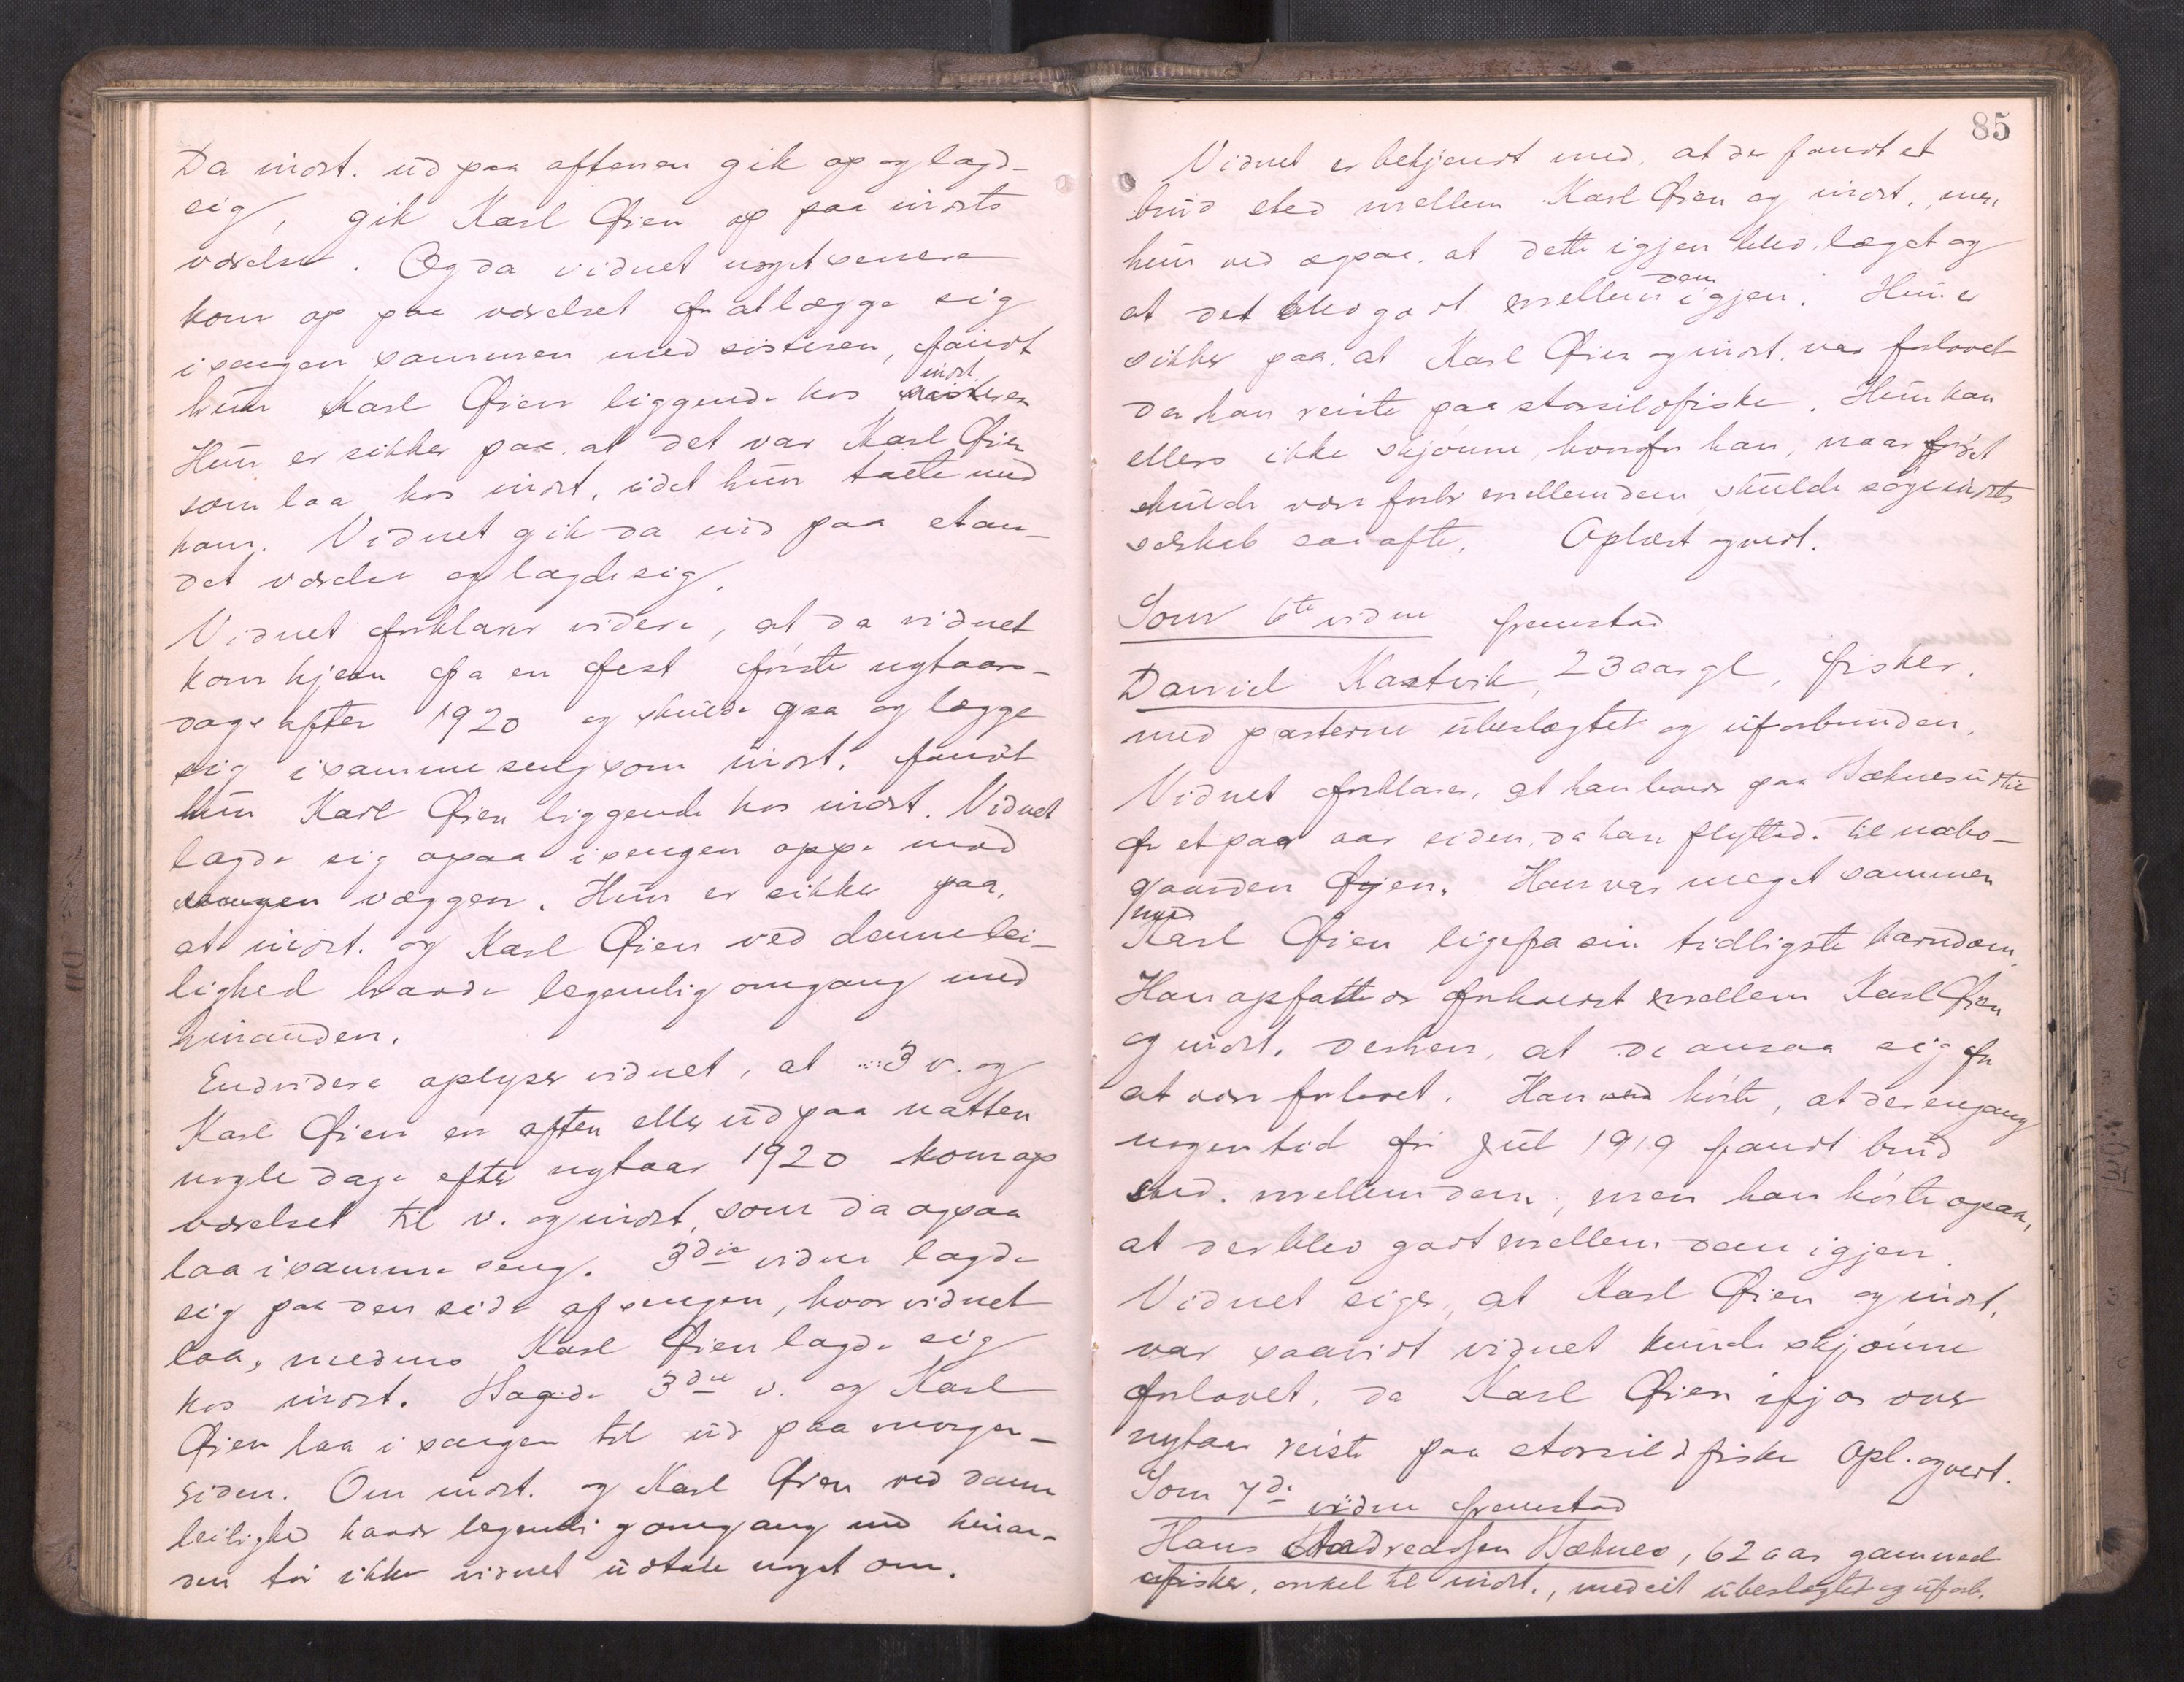 Da indst. ud paa aftenen gik op og lagde
sig, gik Karl Øien op paa indsts
værelse. Og da vidnet noget senere
kom op paa værelset for at lægge sig
i sengen sammen med søsteren, fandt
indst.
hun Karl Øien liggende hos søsteren
Hun er sikker paa, at det var Karl Øien
som laa hos indst, idet hun talte med
ham. Vidnet gik da ind paa et an-
det værelse og lagde sig.
Vidnet forklarer videre, at da vidnet
kom hjem fra en fest første nytaars-
dags aften 1920 og skulde gaa og lægge
sig i samme seng som indst. fandt
hun Karl Øien liggende hos indst. Vidnet
lagde sig ogsaa i sengen oppe mod
sengen væggen. Hun er sikker paa,
at indst. og Karl Øien ved denne lei-
lighed havde legemlig omgang med
hinanden.
Endvidere oplyser vidnet, at 3 v. og
Karl Øien en aften eller ud paa natten
nogle dage efter nytaar 1920 kom op
værelset til v. og indst, som da ogsaa
laa i samme seng. 3die vidne lagde
sig paa den side af sengen, hvor vidnet
laa, medens Karl Øien lagde sig
hos indst. Baade 3die v. og Karl
Øien laa i sengen til ud paa morgen-
siden. Om indst. og Karl Øien ved denne
leilighed havde legemlig omgang med hinan-
den tør ikke vidnet udtale noget om.
85
Vidnet er bekjendt med, at der fandt et
brud sted mellem Karl Øien og indst., men
hun ved ogsaa, at dette igjen blev læget og
dem
at det blev godt mellem igjen. Hun er
sikker paa, at Karl Øien og indst. var forlovet
da han reiste paa storsildfiske. Hun kan
ellers ikke skjønne, hvorfor han, naar det
skulde være forbi mellem dem skulde søge indsts
selskab saa ofte. Oplæst og vedt.
Som 6te vidne fremstod
Daniel Kastvik, 23 aar gl, fisker.
med parterne ubeslægtet og uforbunden.
Vidnet forklarer, at han boede paa Sæbnes indtil
for et par aar siden, da han flyttede til nabo-
gaarden Øyen. Han var meget sammen
med
Karl Øien lige fra sin tidligste barndom.
Han opfattede forholdet mellem Karl Øien
og indst. derhen, at de ansaa sig for
at være forlovet. Han ved hørte, at der engang
nogen tid før Jul 1919 fandt brud
sted mellem dem, men han hørte ogsaa,
at der blev godt mellem dem igjen.
Vidnet siger, at Karl Øien og indst.
var saavidt vidnet kunde skjønne
forlovet, da Karl Øien ifjor over
nytaar reiste paa storsildfiske Opl. og vedt.
Som 7de vidne fremstod
Hans Andreassen Sæbnes, 62 aar gammel
fisker, onkel til indst., med ubeslægtet og uforb.